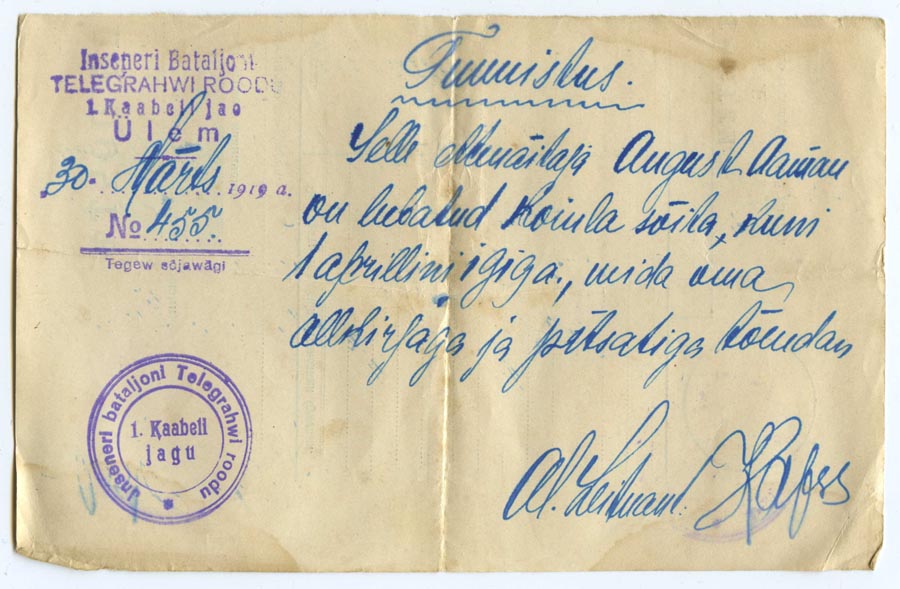 Inseneri Bataljoni
TELEGRAHWI ROODU
1. Kaabeli jao
Ülem
"30" Märts 1919 a.
No 455.
Tegew sõjawägi
Tunnistus.
Selle ettenäitaja August Aaman
on lubatud koiula sõita, kuni
1 aprillini igiga., mida oma
allkirjaga ja pitsatiga tõendan
Al. Leitnant
Inseneri bataljoni Telegrahwi roodu
1. Kaabeli
jagu